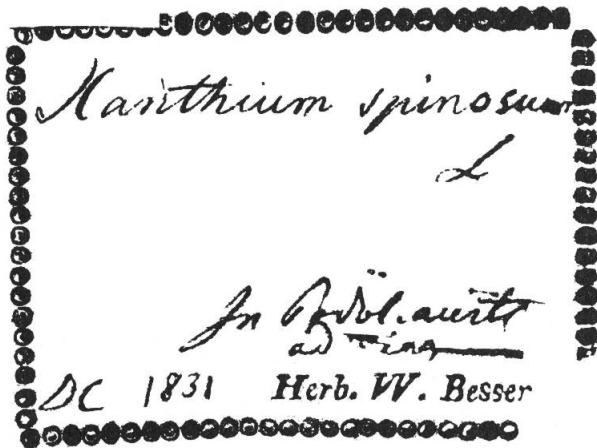 Xanthium spinosum
L
In Podol. austr
ad
DC 1831 Herb. W. Besser